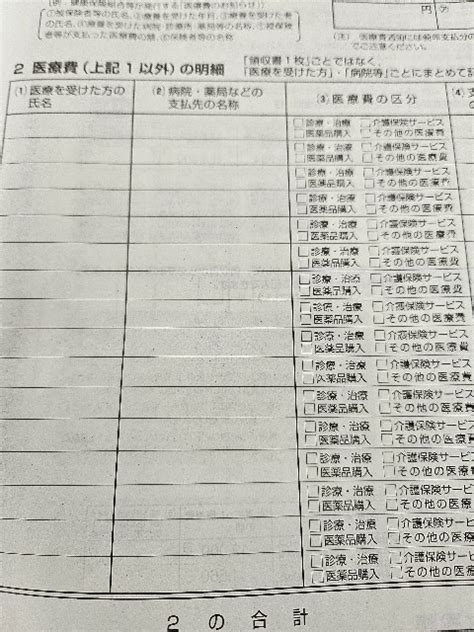 (例：健康保険組合等が発行する「医療費のお知らせ」)
①被保険者等の氏名、②療養を受けた年月、③療養を受けた者
の氏名、④療養を受けた病院・診療所・薬局等の名称、⑤被保険
者等が支払った医療費の額、⑥保険者等の名称
円
㋐
2 医療費(上記1以外)の明細
「領収書1枚」ごとではなく、
「医療を受けた方」・「病院等」ごとにまとめて記
(1) 医療を受けた方の
氏名
(2) 病院・薬局などの
支払先の名称
(3) 医療費の区分
(4)
□診療・治療 □介護保険サービス
□医薬品購入 □その他の医療費
□診療・治療 □介護保険サービス
□医薬品購入 □その他の医療費
□診療・治療 □介護保険サービス
□医薬品購入 □その他の医療費
□診療・治療 □介護保険サービス
□医薬品購入 □その他の医療費
□診療・治療 □介護保険サービス
□医薬品購入 □その他の医療費
□診療・治療 □介護保険サービス
□医薬品購入 □その他の医療費
□診療・治療 □介護保険サービス
□医薬品購入 □その他の医療費
□診療・治療 □介護保険サービス
□医薬品購入 □その他の医療費
□診療・治療 □介護保険サービス
□医薬品購入 □その他の医療費
□診療・治療 □介護保険サービス
□医薬品購入 □その他の医療費
□診療・治療 □介護保険サービス
□医薬品購入 □その他の医療費
□診療・治療 □介護保険サービス
□医薬品購入 □その他の医療費
□診療・治療 □介護保険サービス
□医薬品購入 □その他の医療費
□診療・治療 □介護保険サービス
□医薬品購入 □その他の医療費
□診療・治療 □介護保険サービス
□医薬品購入 □その他の医療費
2の合計